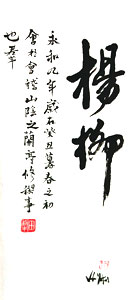 楊柳
永和九年歲在癸丑暮春之初
會於會稽山陰之蘭亭修禊事
也